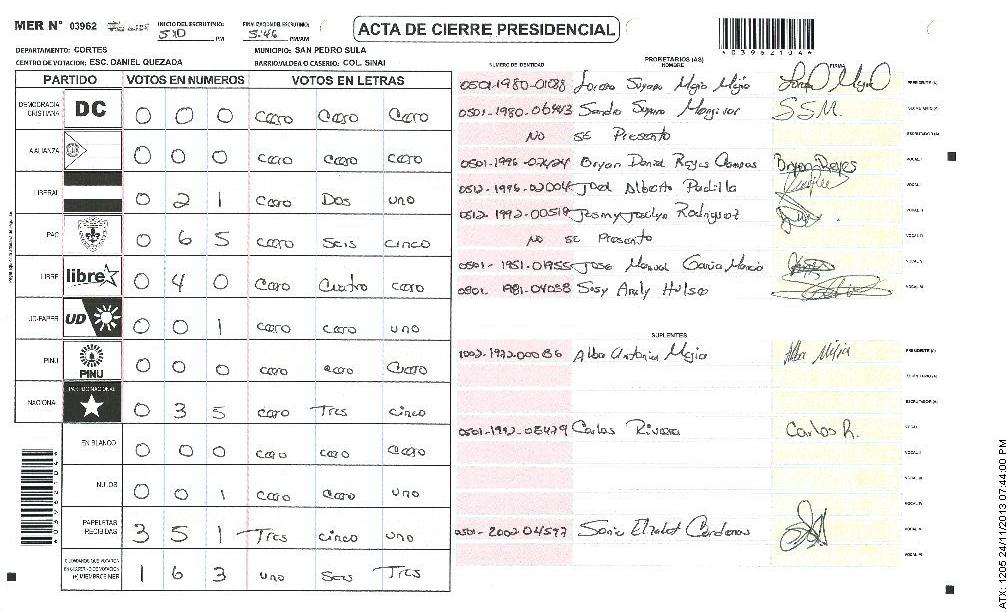 MER N° 03962
INICIO DEL ESCRUTINIO: 5:10 PM
FINALIZACION DEL ESCRUTINIO: 5:46 PM/AM
ACTA DE CIERRE PRESIDENCIAL
03962104
DEPARTAMENTO: CORTES
MUNICIPIO: SAN PEDRO SULA
CENTRO DE VOTACION: ESC. DANIEL QUEZADA
BARRIO/ALDEA O CASERIO: COL. SINAI
PARTIDO VOTOS EN NUMEROS VOTOS EN LETRAS
DEMOCRACIA CRISTIANA DC 0 0 0 cero cero cero
AALIANZA 0 0 0 cero cero cero
LIBERAL 0 2 1 cero Dos uno
PAC 0 6 5 cero seis cinco
LIBRE libre 0 4 0 cero cuatro cero
UD-FAPER UD 0 0 1 cero cero uno
PINU PINU 0 0 0 cero cero cero
NACIONAL PARTIDO NACIONAL 0 3 5 cero Tres cinco
EN BLANCO 0 0 0 cero cero cero
NULOS 0 0 1 cero cero uno
PAPELETAS RECIBIDAS 3 5 1 Tres cinco uno
CIUDADANOS QUE VOTARON EN CUADERNO DE VOTACION (+) MIEMBROS MER 1 6 3 uno Seis Tres
NUMERO DE IDENTIDAD
PROPIETARIOS (AS)
NOMBRE
FIRMA
0501-1980-01088 PRESIDENTE (A)
0501-1980-06443 S.S.M.
No se Presento ESCRUTADOR (A)
0501-1996-07424 Bryan Daniel Reyes Campos Bryan Reyes VOCAL I
0512-1996-02004 Joel Alberto Padilla
0512-1992-00518 Rodriguez
No se Presento
0501-1951-01955 Jose Manuel Garcia
0501-1981-04058
SUPLENTES
Alba Antonia Mejia Alba Mejia PRESIDENTE (A)
SECRETARIO (A)
ESCRUTADOR (A)
0501-1992-08479 Carlos Rivera Carlos R. VOCAL I
VOCAL II
VOCAL III
VOCAL IV
0501-2002-04597 Sonia Elizabet Cardenas VOCAL V
VOCAL VI
ATX: 1205 24/11/2013 07:44:00 PM